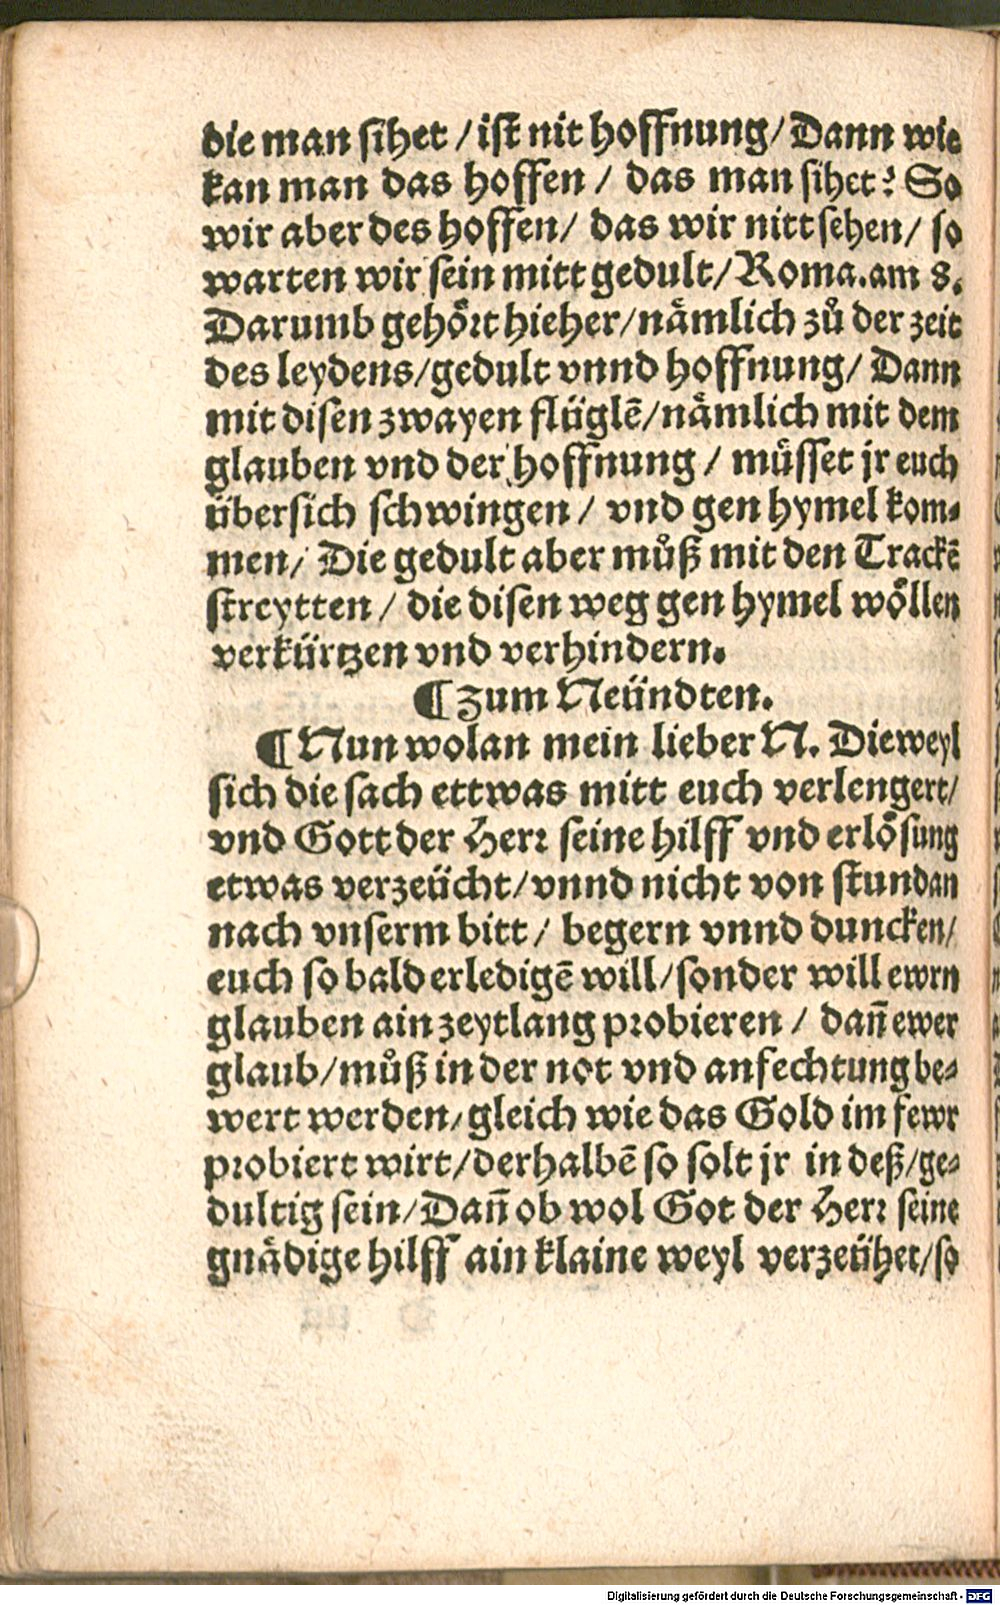 die man sihet / ist nit hoffnung / Dann wie
kan man das hoffen / das man sihet? So
wir aber des hoffen / das wir nitt sehen / so
warten wir sein mitt gedult / Roma. am 8.
Darumb gehört hieher / nämlich zů der zeit
des leydens / gedult vnnd hoffnung / Dann
mit disen zwayen flüglē / nämlich mit dem
glauben vnd der hoffnung / müsset jr euch
übersich schwingen / vnd gen hymel kom-
men / Die gedult aber můß mit den Trackē
streytten / die disen weg gen hymel wöllen
verkürtzen vnd verhindern.
¶ Zum Neündten.
¶ Nun wolan mein lieber N. Dieweyl
sich die sach ettwas mitt euch verlengert /
vnd Gott der Herr seine hilff vnd erlösung
etwas verzeücht / vnnd nicht von stundan
nach vnserm bitt / begern vnnd duncken /
euch so bald erledigē will / sonder will ewrn
glauben ain zeytlang probieren / dañ ewer
glaub / můß in der not vnd anfechtung be-
wert werden / gleich wie das Gold im fewr
probiert wirt / derhalbē so solt jr in deß / ge-
dultig sein / Dañ ob wol Got der Herr seine
gnädige hilff ain klaine weyl verzeühet / so
Digitalisierung gefördert durch die Deutsche Forschungsgemeinschaft - DFG